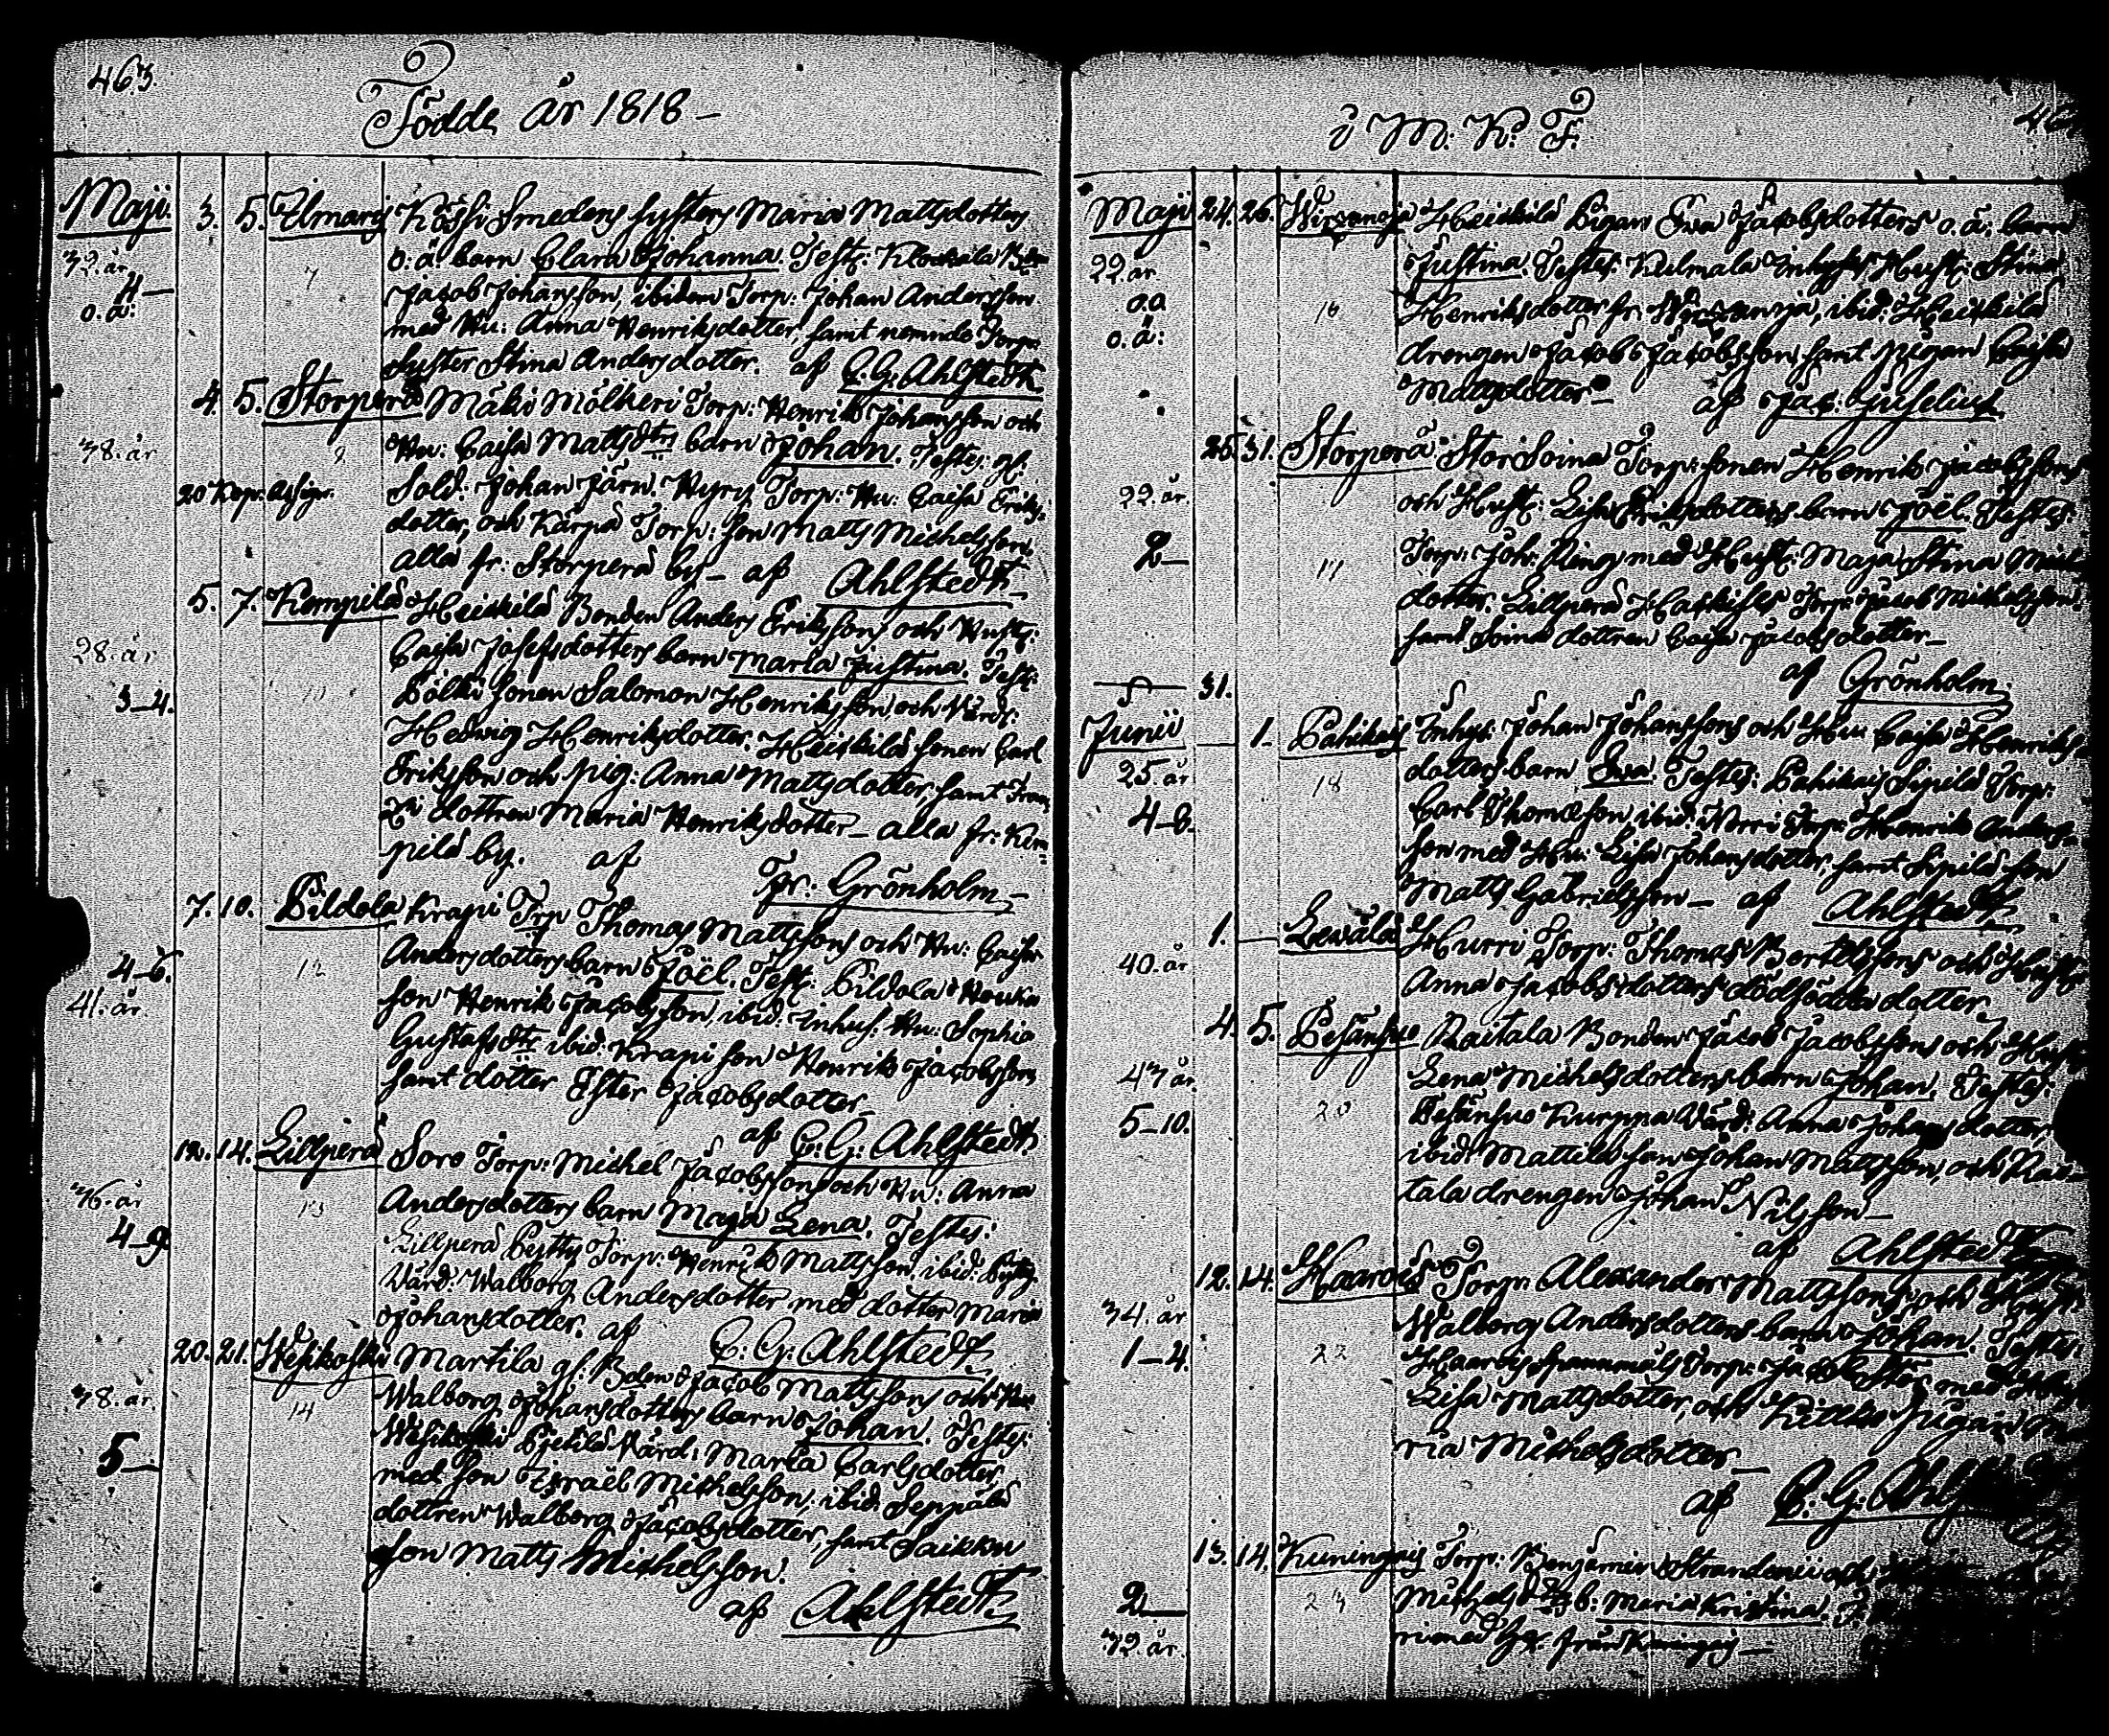 463.
Födde år 1818 –
Maji. 3. 5. Ilmarij Kåssi Smedens systers Maria Mattsdotters
32. år o. ä. barn Clara Johanna. Test:
4 – 7 Jacob Johansson, ibidem Torp: Johan Andersson
o. ä: med Hu: Anna Henriksdotter, samt nemnde Torp:
Syster Stina Andersdotter. af C: G: Ahlstedt
4. 5. Storperä Mäki Mölkeri Torp: Henrik Johansson och
38. år 9 Hu: Caisa Mattsdtrs barn Johan. Testes: gl:
20 Kop: Sold: Johan Järn. Hyry Torp: Hu: Caisa Eriks-
dotter, och Kärpä Torp: son Matts Michelsson,
alla fr: Storperä by – af Ahlstedt –
5. 7. Kempilä Heickilä Bonden Anders Erikssons och Hust:
28. år Caisa Josefsdotters barn Maria Justina. Test:
3–4. 10 Pölkki sonen Salomon Henriksson, och Värd:
Hedwig Henriksdotter. Heickilä sonen Carl
Eriksson och pig: Anna Mattsdotter, samt
dottren Maria Henriksdotter – alla fr: Kem-
pilä by. af Pr: Grönholm –
7. 10. Pildola Krapi Trp Thomas Mattssons och Hu: Caisa
4–6. 12 Andersdotters barn Joël. Test: Pildola
41. år. son Henrik Jacobsson, ibid: Inhys. Hu: Sophia
Gustafsdtr ibid: Krapi son Henrik Jacobsson
samt dotter Ester Jacobsdotter –
af C: G: Ahlstedt.
12. 14. Lillperä Soro Torp: Michel Jacobssons och Hu: Anna
36. år 13 Andersdotters barn Maja Lena. Testes:
4–9. Lillperä Torp: Henrik Mattsson, ibid:
Värd: Walborg Andersdotter med dotter Maria
Johansdotter. af C: G: Ahlstedt
20. 21. Wesikoski Martila gl: Bden Jacob Mattssons och Hu:
38. år. 14 Walborg Johansdotters barn Johan. Testes:
Wesikoski Värd: Maria Carlsdotter,
5 – med son Israël Michelsson, ibid: Seppälä
dottren Walborg Jacobsdotter, samt Saikku
son Matts Michelsson.
af Ahlstedt
i M: K: F:
Maji 24. 26. Heickilä Pigans Ewa Jacobsdotters o. ä: barn
22 år Justina. Testes: Kulmala Inhyses Hust: Stina
o. a 16 Henriksdotter fr: ibid: Heickilä
o. ä: drengen Jacob Jacobsson samt pigan Caisa
Mattsdotter – af Jac:
25. 31. Storperä Stor Soini Torp: sonen Henrik Jacobssons
22. år. och Hust: Lisa Eriksdotters barn Joël. Testes:
2 – 17 Torp: Joh: Ring med Hust: Maja Stina
dotter. Lillperä Torp: Jacob Michelsson
samt Soini dottren Caisa Jacobsdotter –
31. af Grönholm.
Junii – 1. Pahikais Inhys: Johan Johanssons och Hu: Caisa Henriks-
25 år 18 dotters barn Ewa. Testes: Pahikais Sipilä Torp:
4–6. Carl Thomasson ibid: Norri Torp: Henrik Anders-
son med Hu: Lisa Johansdotter, samt Sipilä son
Matts Gabrielsson – af Ahlstedt
1. – Lewälä Hurri Torp: Thomas Bertilssons och Hust:
40. år Anna Jacobsdotters dödfödda dotter.
4. 5. Pesänsuo Raitala Bonden Jacob Jacobssons och Hust:
43 år 20 Lena Michelsdotters barn Johan. Testes:
5–10. Pesänsuo Kurppa Värd: Anna Johansdotter,
ibid: Mattila son Johan Mattsson, och Rai-
tala drengen Johan Nilsson –
af Ahlstedt
12. 14. Haarois Torp: Alexander Mattssons och Hust:
34. år Walborg Andersdotters barn Johan. Testes:
1–4. 22 Haarois Torp: Jacob med
Lisa Mattsdotter, och pigan Ma-
ria Michelsdotter –
af C: G:
13. 14. Kuningois Torp: Benjamin och
2 – 23 Michelsdtrs b: Maria Kristina.
32. år.